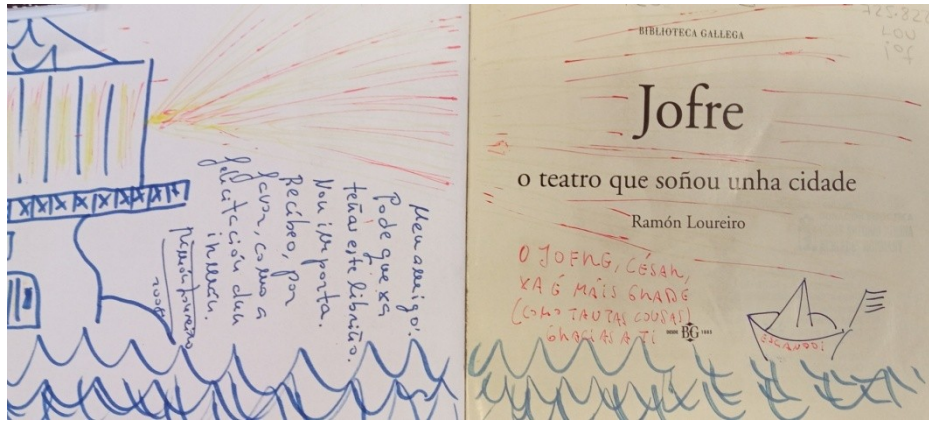 Meu amigo:
Pode que xa
teñas este libriño.
Non importa.
Recíbeo, por
favor, como a
felicitación dun
irmán.
Ramón Loureiro
2008
BIBLIOTECA GALLEGA
725.822
LOU
jof
Jofre
o teatro que soñou unha cidade
Ramón Loureiro
O JOFRE, CÉSAR,
XA É MÁIS GRANDE
(COMO TANTAS COUSAS)
GRACIAS A TI
BG